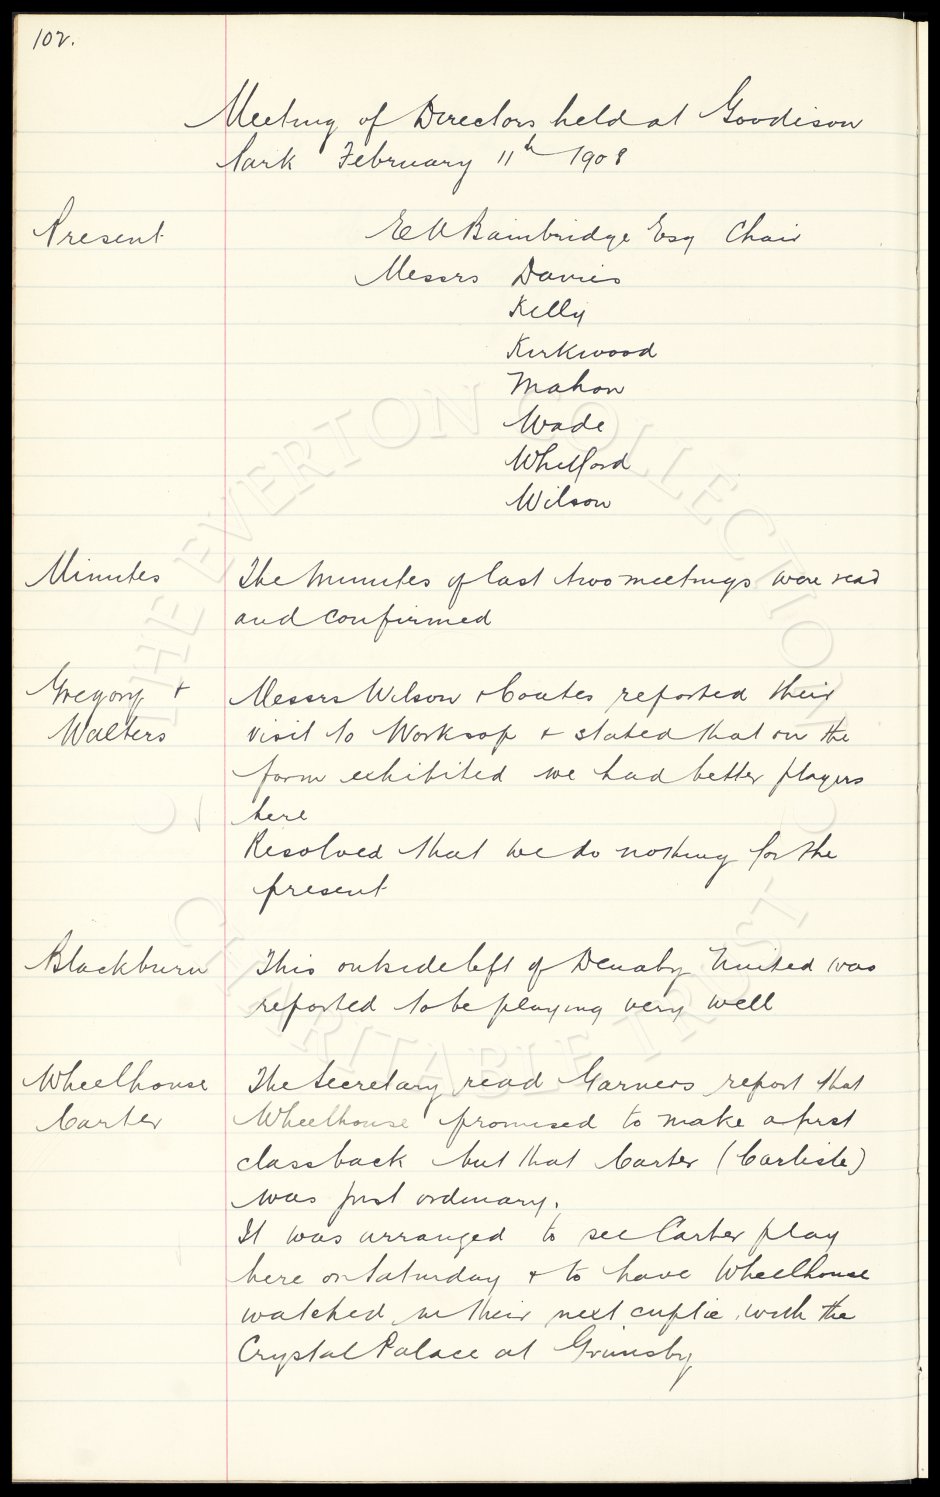 102.
Meeting of Directors held at Goodison
Park February 11th 1908
Present
E A Bainbridge Esq Chair
Messrs Davies
Kelly
Kirkwood
Mahon
Wade
Whitford
Wilson
Minutes
The Minutes of last two meetings were read
and confirmed
Gregory +
Walters
Messrs Wilson + Coates reported their
visit to Worksop + stated that on the
form exhibited we had better players
here
Resolved that we do nothing for the
present
Blackburn
This outside left of Denaby United was
reported to be playing very well
Wheelhouse
Carter
The Secretary read Garners report that
Wheelhouse promised to make a first
class back but that Carter (Carlisle)
was just ordinary.
It was arranged to see Carter play
here on Saturday + to have Wheelhouse
watched in their next cuptie with the
Crystal Palace at Grimsby
THE EVERTON COLLECTION
CHARITABLE TRUST